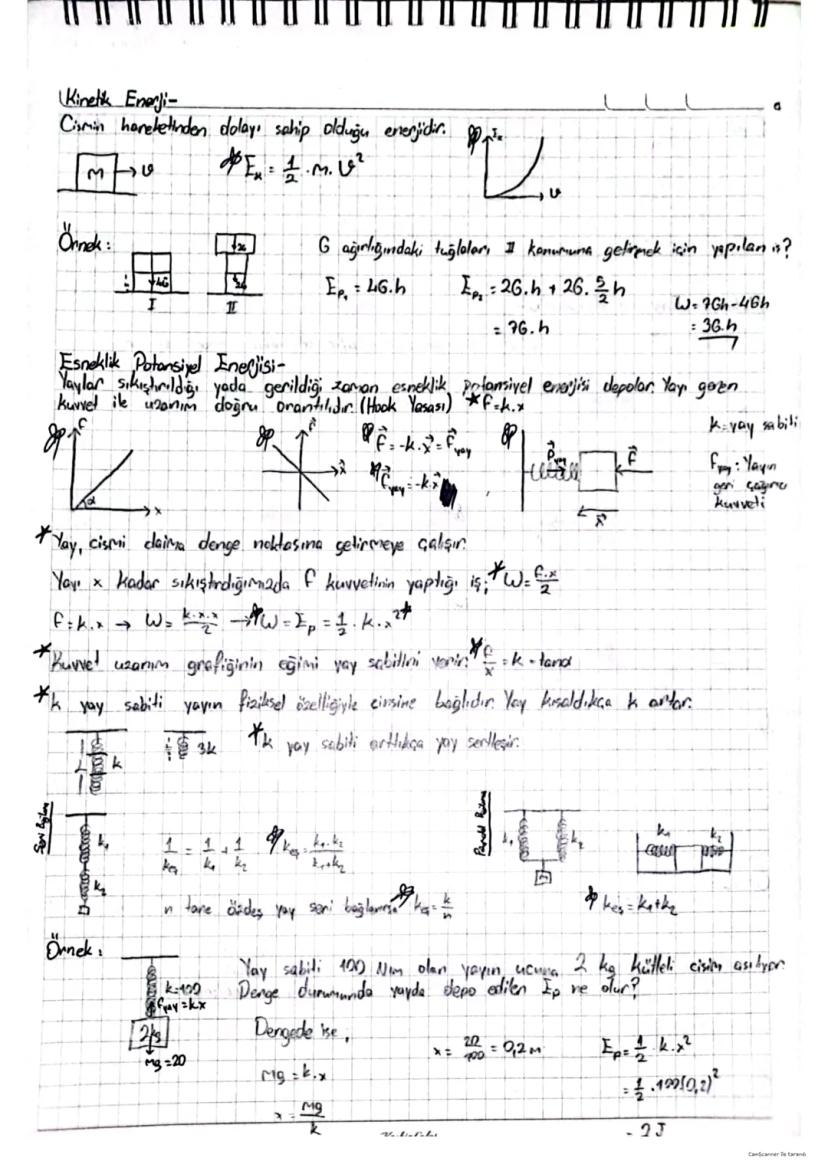 Kinetik Enerji-
Cismin hareketinden dolayı sahip olduğu enerjidir.
M → υ
Eₖ = 1/2 . m. υ²
υ
Örnek:
G ağırlığındaki tuğlaları II konumuna getirmek için yapılan iş?
4G
I
II
Ep₁ = 4G.h
Ep₂ = 2G.h + 2G. 5/2 h
= 7G.h
W = 7Gh - 4Gh
= 3G.h
Esneklik Potansiyel Enerjisi-
Yaylar sıkıştırıldığı yada gerildiği zaman esneklik potansiyel enerjisi depolar. Yayı geren
kuvvet ile uzanım doğru orantılıdır. (Hook Yasası) *F=k.x
k=yay sabiti
F
α
x
F
x
F = -k.x = Fyay
Fyay = -k.x
Fyay
F
x
Fyay: Yayın
geri çağırıcı
kuvveti
* Yay, cismi daima denge noktasına getirmeye çalışır.
Yayı x kadar sıkıştırdığımızda F kuvvetinin yaptığı iş; * W = F.x/2
F = k.x → W = k.x.x/2 → W = Ep = 1/2 . k.x² *
* Kuvvet uzanım grafiğinin eğimi yay sabitini verir. * F/x = k = tanα
* k yay sabiti yayın fiziksel özelliğiyle cinsine bağlıdır. Yay kısaldıkça k artar.
k
3k
* k yay sabiti arttıkça yay sertleşir.
Seri Bağlama
k₁
k₂
1/keş = 1/k₁ + 1/k₂
keş = k₁.k₂/k₁+k₂
n tane özdeş yay seri bağlanırsa keş = k/n
Paralel Bağlama
k₁
k₂
k₁
k₂
keş = k₁+k₂
Örnek:
Yay sabiti 100 N/m olan yayın ucuna 2 kg kütleli cisim asılıyor.
Denge durumunda yayda depo edilen Ep ne olur?
k=100
Fyay = k.x
2kg
Mg = 20
Dengede ise,
Mg = k.x
x = Mg/k
x = 20/100 = 0,2 m
Ep = 1/2 . k.x²
= 1/2 . 100(0,2)²
= 2J
CamScanner ile tarandı